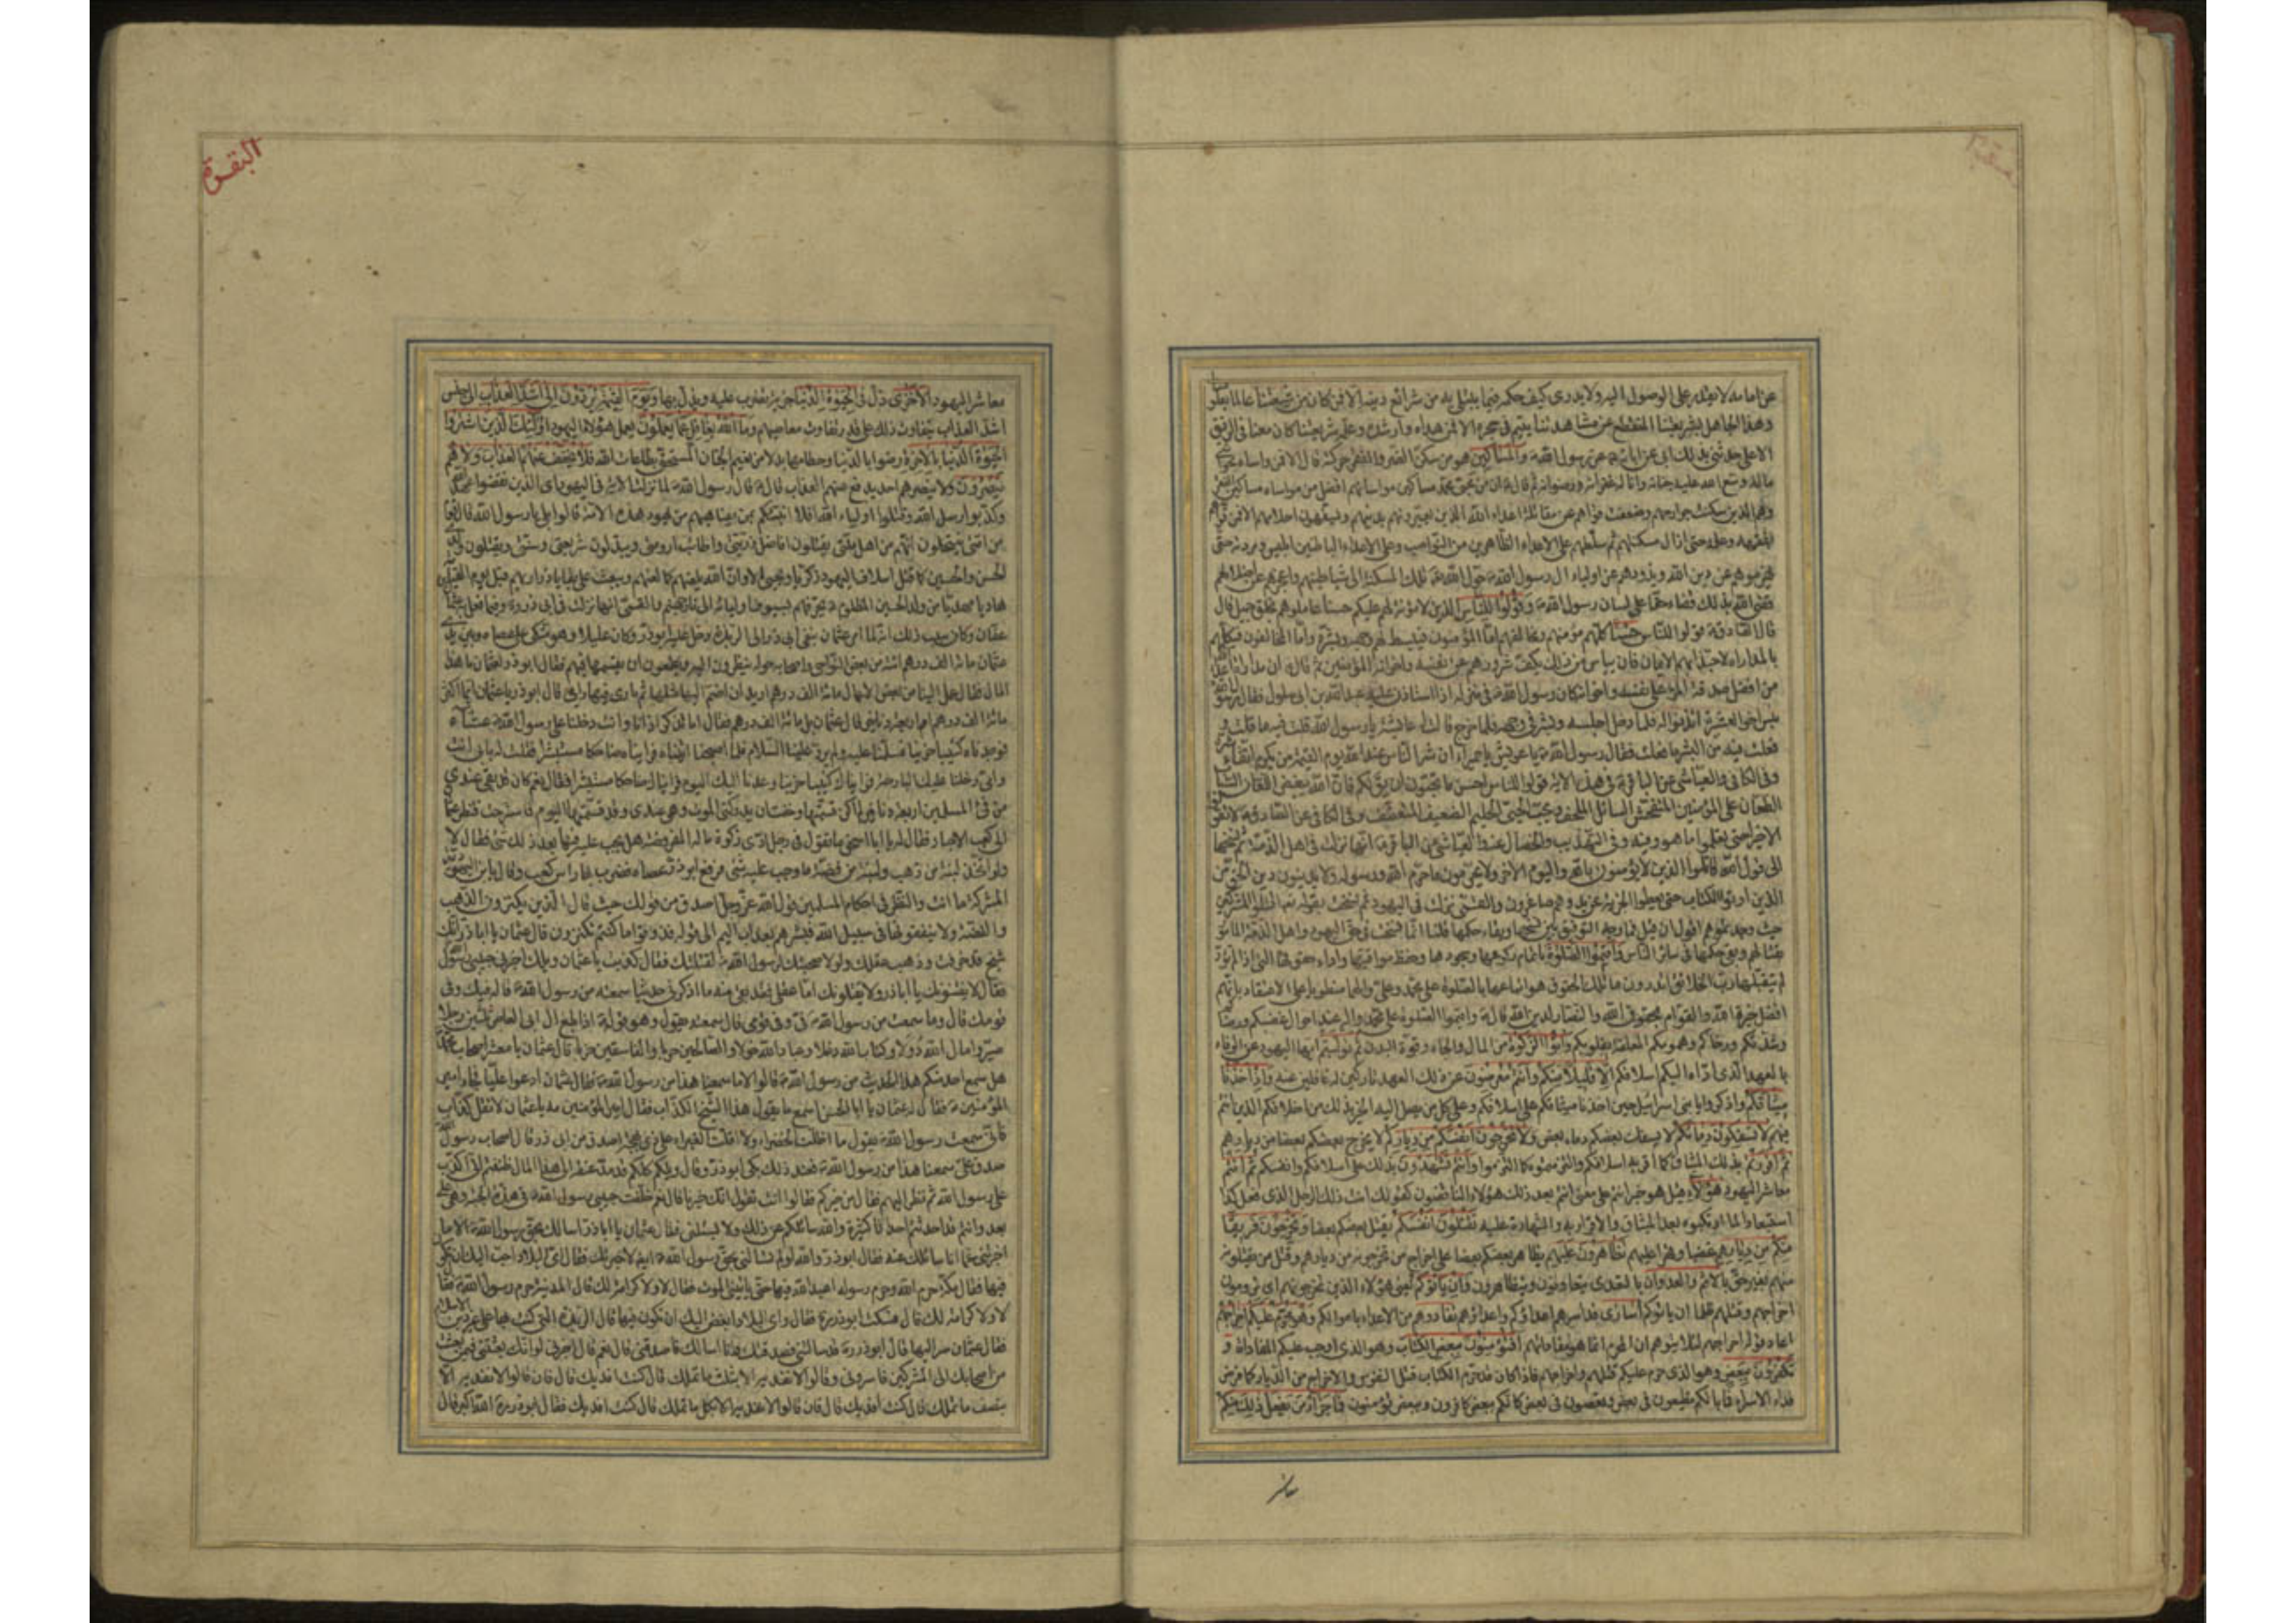 عن امامه لا يقدر على الوصول اليه ولا يدرى كيف حكمه فيما يبتلى به من شرائع دينه الا فمن كان من شيعتنا عالما بعلومنا
وهذا الجاهل بشريعتنا المنقطع عن مشاهدتنا يتيم فى حجره الا فمن هداه وارشده وعلمه شريعتنا كان معنا فى الرفيق
الاعلى حدثنى بذلك ابى عن ابائه عن رسول الله والمساكين هو من سكن الضر والفقر حركته قال الا فمن واساهم بحواشى
ماله وسع الله عليه جنانه واناله غفرانه ورضوانه ثم قال ان من محبى محمد مساكين مواساتهم افضل من مواساة مساكين الفقر
وهم الذين سكنت جوارحهم وضعفت قواهم عن مقاتلة اعداء الله الذين يعيرونهم بدينهم ويسفهون احلامهم الا فمن قواهم
بفقهه وعلمه حتى ازال مسكنتهم ثم سلطهم على الاعداء الظاهرين من النواصب وعلى الاعداء الباطنين ابليس ومردته حتى
يهزموهم عن دين الله ويذودوهم عن اولياء ال رسول الله حول الله تلك المسكنة الى شياطينهم واعجزهم عن اضلالهم
قضى الله بذلك قضاء حقا على لسان رسول الله وقولوا للناس الذين لا مؤنة لهم عليكم حسنا عاملوهم بخلق جميل قال
قال الصادق قولوا للناس حسنا كلهم مؤمنهم ومخالفهم اما المؤمنون فيبسط لهم وجهه وبشره واما المخالفون فيكلمهم
بالمداراة لاجتذابهم الى الايمان فان ييأس من ذلك يكف شرورهم عن نفسه واخوانه المؤمنين ثم قال ان مداراة اعداء الله
من افضل صدقة المرء على نفسه واخوانه كان رسول الله فى منزله اذ استاذن عليه عبد الله بن ابى سلول فقال رسول الله
بئس اخو العشيرة ائذنوا له فلما دخل اجلسه وبشر فى وجهه فلما خرج قالت له عايشة يا رسول الله قلت فيه ما قلت و
فعلت فيه من البشر ما فعلت فقال رسول الله يا عويش يا حميراء ان شر الناس عند الله يوم القيمة من يكرم اتقاء شره
وفى الكافى والعياشى عن الباقر فى هذه الاية قولوا للناس احسن ما تحبون ان يقال لكم فان الله يبغض اللعان السباب
الطعان على المؤمنين المتفحش السائل الملحف ويحب الحيى الحليم الضعيف المتعفف وفى الكافى عن الصادق لا تقولوا
الا خيرا حتى تعلموا ما هو وفيه وفى التهذيب والخصال عنه والعياشى عن الباقر انها نزلت فى اهل الذمة ثم نسخها
الى قول الله قاتلوا الذين لا يؤمنون بالله واليوم الاخر ولا يحرمون ما حرم الله ورسوله ولا يدينون دين الحق من
الذين اوتوا الكتاب حتى يعطوا الجزية عن يد وهم صاغرون والقمى نزلت فى اليهود ثم نسخت بقوله تعالى اقتلوا المشركين
حيث وجدتموهم اقول ان قيل فما وجه التوفيق بين نسخها وبقاء حكمها قلنا انما نسخت فى حق اليهود واهل الذمة المامور
بقتالهم وبقى حكمها فى سائر الناس واقيموا الصلوة باتمام ركوعها وسجودها وحفظ مواقيتها واداء حقوقها التى اذا لم تؤد
لم يتقبلها رب الخلائق اتدرون ما تلك الحقوق هو اتباعها بالصلوة على محمد وعلى والهما منطويا على الاعتقاد بانهم
افضل خيرة الله والقوام بحقوق الله والنصار لدين الله قال واقيموا الصلوة على محمد واله عند احوال غضبكم ورضاكم
وشدتكم ورخاكم وهمومكم المعلقة بقلوبكم واتوا الزكوة من المال والجاه وقوة البدن ثم توليتم ايها اليهود عن الوفاء
بالعهد الذى اداه اليكم اسلافكم الا قليلا منكم وانتم معرضون عن ذلك العهد تاركين له غافلين عنه واذ اخذنا
ميثاقكم واذكروا يا بنى اسرائيل حين اخذنا ميثاقكم على اسلافكم وعلى كل من يصل اليه الخبر بذلك من اخلافكم الذين انتم
منهم لا تسفكون دماءكم لا يسفك بعضكم دماء بعض ولا تخرجون انفسكم من دياركم لا يخرج بعضكم بعضا من ديارهم
ثم اقررتم بذلك الميثاق كما اقر به اسلافكم والتزمتموه كما التزموا وانتم تشهدون بذلك على اسلافكم وانفسكم ثم انتم
معاشر اليهود هؤلاء قيل هو خبر انتم على معنى انتم بعد ذلك هؤلاء الناقضون كقولك انت ذلك الرجل الذى فعل كذا
استبعادا لما ارتكبوه بعد الميثاق والاقرار به والشهادة عليه تقتلون انفسكم يقتل بعضكم بعضا وتخرجون فريقا
منكم من ديارهم غضبا وقهرا عليهم تظاهرون عليهم يظاهر بعضكم بعضا على اخراج من تخرجونه من ديارهم وقتل من تقتلونه
منهم بغير حق بالاثم والعدوان بالتعدى تتعاونون وتتظاهرون وان ياتوكم يعنى هؤلاء الذين تخرجونهم اى ترومون
اخراجهم وقتلهم ظلما ان ياتوكم اسارى قد اسرهم اعداؤكم واعداؤهم تفادوهم من الاعداء باموالكم وهو محرم عليكم اخراجهم
اعاد قوله اخراجهم لئلا يتوهم ان المحرم انما هو مفاداتهم افتؤمنون ببعض الكتاب وهو الذى اوجب عليكم المفاداة و
تكفرون ببعض وهو الذى حرم عليكم قتلهم واخراجهم فاذا كان قد حرم الكتاب قتل النفوس والاخراج من الديار كما فرض
فداء الاسراء فما بالكم تطيعون فى بعض وتعصون فى بعض كانكم ببعض كافرون وببعض مؤمنون فما جزاء من يفعل ذلك منكم
معاشر
البقرة
معاشر اليهود الا خزى ذل فى الحيوة الدنيا جزية تضرب عليه ويذل بها ويوم القيمة يردون الى اشد العذاب الى جنس
اشد العذاب يتفاوت ذلك على قدر تفاوت معاصيهم وما الله بغافل عما يعملون يعمل هؤلاء اليهود اولئك الذين اشتروا
الحيوة الدنيا بالاخرة رضوا بالدنيا وحطامها بدلا من نعيم الجنان المستحق بطاعات الله فلا يخفف عنهم العذاب ولا هم
ينصرون ولا ينصرهم احد يدفع عنهم العذاب قال قال رسول الله لما نزلت الاية فى اليهود اى الذين نقضوا عهد الله
وكذبوا رسل الله وقتلوا اولياء الله افلا انبئكم بمن يضاهيهم من يهود هذه الامة قالوا بلى يا رسول الله قال قوم
من امتى ينتحلون انهم من اهل ملتى يقتلون افاضل ذريتى واطائب ارومتى ويبدلون شريعتى وسنتى ويقتلون ولدى
الحسن والحسين كما قتل اسلاف اليهود ذكريا ويحيى الا وان الله يلعنهم كما لعنهم ويبعث على بقايا ذراريهم قبل يوم القيمة
هاديا مهديا من ولد الحسين المظلوم يحرقهم بسيوف اوليائه الى نار جهنم والقمى انها نزلت فى ابى ذر وفيما فعل به عثمان بن
عفان وكان سبب ذلك انه لما امر عثمان بنفى ابى ذر الى الربذة دخل عليه ابو ذر وكان عليلا وهو متكئ على عصاه وبين يدى
عثمان مائة الف درهم اتته من بعض النواحى واصحابه حوله ينظرون اليه ويطمعون ان يقسمها فيهم فقال ابو ذر لعثمان ما هذا
المال فقال حمل الينا من بعض الاعمال مائة الف درهم اريد ان اضم اليها مثلها ثم ارى فيها رايى قال ابو ذر يا عثمان ايما اكثر
مائة الف درهم ام اربعة دنانير قال عثمان بل مائة الف درهم فقال اما تذكر اذ انا وانت دخلنا على رسول الله عشاء
فوجدناه كئيبا حزينا فسلمنا عليه ولم يرد علينا السلام فلما اصبحنا اتيناه فرايناه ضاحكا مستبشرا فقلت له بابى انت
وامى دخلنا عليك البارحة فرايناك كئيبا حزينا وعدنا اليك اليوم فرايناك ضاحكا مستبشرا فقال نعم كان قد بقى عندى
من فئ المسلمين اربعة دنانير لم اكن قسمتها وخفت ان يدركنى الموت وهى عندى وقد قسمتها اليوم فاسترحت فنظر عثمان
الى كعب الاحبار فقال له يا ابا اسحق ما تقول فى رجل ادى زكوة ماله المفروضة هل يجب عليه فيها بعد ذلك شئ فقال لا
ولو اتخذ لبنة من ذهب ولبنة من فضة ما وجب عليه شئ فرفع ابو ذر عصاه فضرب بها راس كعب وقال يا بن اليهودية
المشركة ما انت والنظر فى احكام المسلمين قول الله عز وجل اصدق من قولك حيث قال الذين يكنزون الذهب
والفضة ولا ينفقونها فى سبيل الله فبشرهم بعذاب اليم الى قوله فذوقوا ما كنتم تكنزون قال عثمان يا ابا ذر انك
شيخ قد خرفت وذهب عقلك ولولا صحبتك لرسول الله لقتلتك فقال كذبت يا عثمان ويلك اخبرنى حبيبى رسول الله
فقال لا يفتنونك يا اباذر ولا يقتلونك اما عقلى فقد بقى منه ما اذكرنى حديثا سمعته من رسول الله قاله فيك وفى
قومك قال وما سمعت من رسول الله فى وفى قومى قال سمعته يقول وهو قوله اذا بلغ ال ابى العاص ثلثين رجلا
صيروا مال الله دولا وكتاب الله دغلا وعباد الله خولا والصالحين حربا والفاسقين حزبا قال عثمان يا معشر اصحاب محمد
هل سمع احد منكم هذا الحديث من رسول الله قالوا لا ما سمعنا هذا من رسول الله فقال عثمان ادعوا عليا فجاء امير
المؤمنين فقال له عثمان يا ابا الحسن اسمع ما يقول هذا الشيخ الكذاب فقال امير المؤمنين مه يا عثمان لا تقل كذاب
فانى سمعت رسول الله يقول ما اظلت الخضراء ولا اقلت الغبراء على ذى لهجة اصدق من ابى ذر قال اصحاب رسول الله
صدق على سمعنا هذا من رسول الله فعند ذلك بكى ابو ذر وقال ويلكم كلكم قد مد عنقه الى هذا المال ظننتم انى اكذب
على رسول الله ثم نظر اليهم فقال من خيركم فقالوا انت تقول انك خيرنا قال نعم خلفت حبيبى رسول الله فى هذه الجبة وهى على
بعد وانتم قد احدثتم احداثا كثيرة والله سائلكم عن ذلك ولا يسئلنى فقال عثمان يا ابا ذر اسالك بحق رسول الله الا ما
اخبرتنى عما انا سائلك عنه فقال ابو ذر والله لو لم تسالنى بحق رسول الله ايضا لاخبرتك فقال اى البلاد احب اليك ان تكون
فيها فقال مكة حرم الله وحرم رسوله اعبد الله فيها حتى ياتينى الموت فقال لا ولا كرامة لك قال المدينة حرم رسول الله فقال
لا ولا كرامة لك قال فسكت ابو ذر فقال واى البلاد ابغض اليك ان تكون فيها قال الربذة التى كنت فيها على غير دين الاسلام
فقال عثمان سر اليها قال ابو ذر قد سالتنى فصدقتك وانا اسالك فاصدقنى قال نعم قال اخبرنى لو انك بعثتنى فيمن بعثت
من اصحابك الى المشركين فاسرونى وقالوا لا نفديه الا بثلث ما تملك قال كنت افديك قال فان قالوا لا نفديه الا
بنصف ما تملك قال كنت افديك قال فان قالوا لا نفديه الا بكل ما تملك قال كنت افديك فقال ابو ذر الله اكبر قال